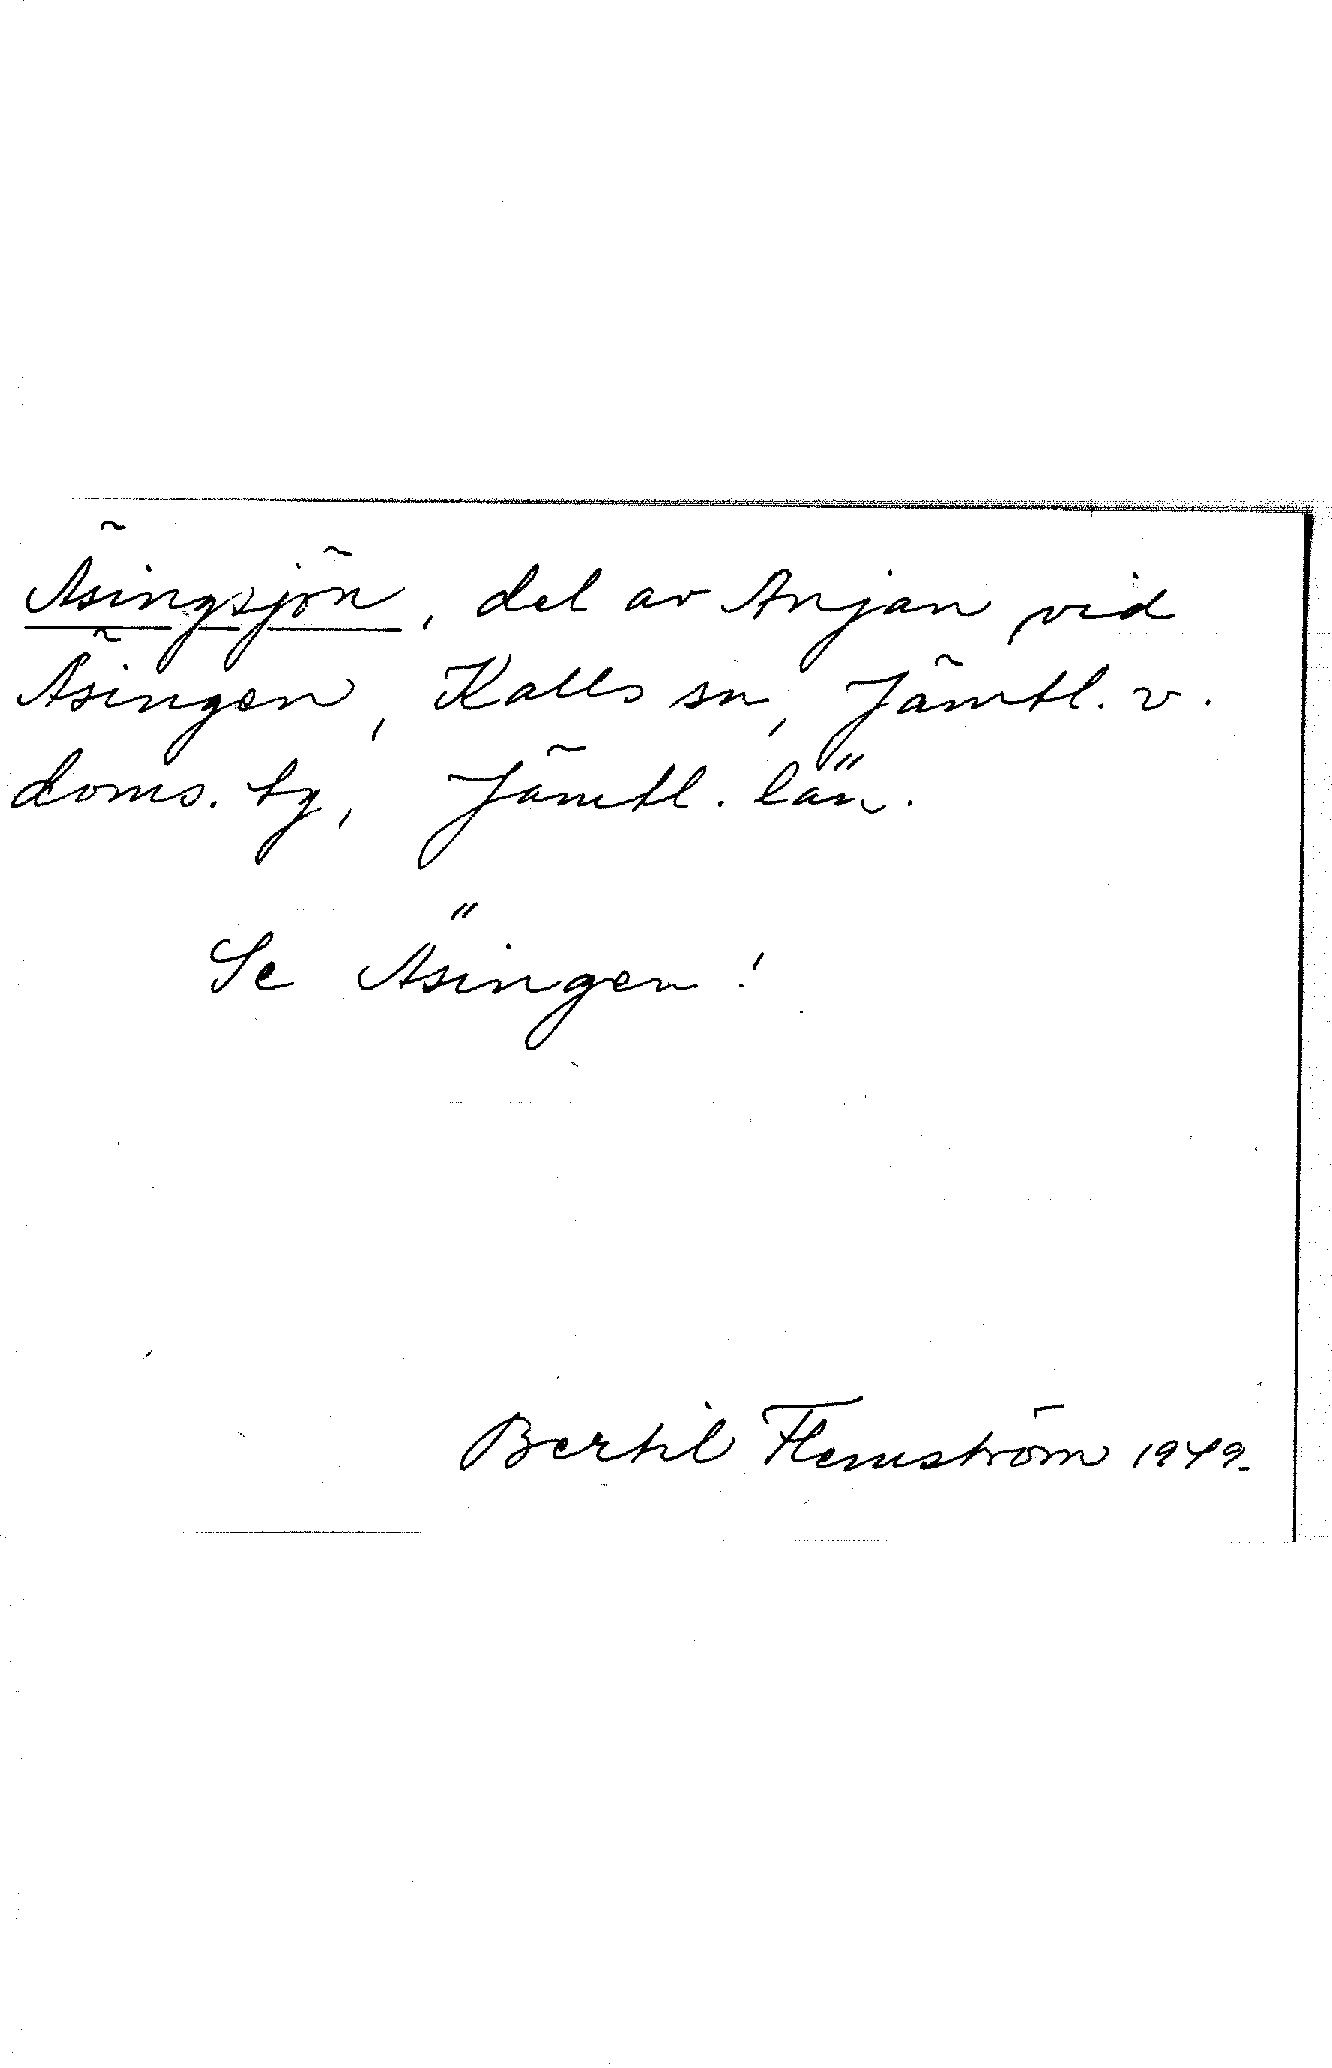 Äsingsjön, del av Anjan vid
Äsingen, Kalls sn, Jämtl. v.
doms. tg, Jämtl. län.
Se Äsingen!
Bertil Flemström 1949.